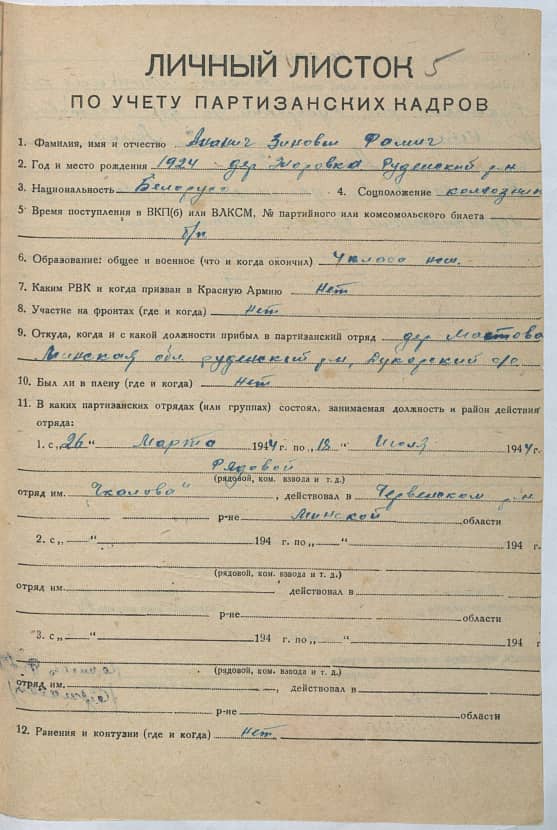 ЛИЧНЫЙ ЛИСТОК 5
ПО УЧЕТУ ПАРТИЗАНСКИХ КАДРОВ
1. Фамилия, имя и отчество Ананич Зиновий Фомич
2. Год и место рождения 1924 дер Жоровка Руденский р-н
3. Национальность Белорусс 4. Соцположение колхозник
5 Время поступления в ВКП(б) или ВЛКСМ, № партийного или комсомольского билета
б/п
6. Образование: общее и военное (что и когда окончил) 4 класа
7. Каким РВК и когда призван в Красную Армию Нет
8. Участие на фронтах (где и когда) нет
9. Откуда, когда и с какой должности прибыл в партизанский отряд дер
Минская обл. Руденский р-н, Дукорский с/с
10. Был ли в плену (где и когда) нет
11. В каких партизанских отрядах (или группах) состоял, занимаемая должность и район действия
отряда:
1. с „26 “ Марта 1944 г. по „18 “ Июля 1944 г.
Рядовой
(рядовой, ком. взвода и т. д.)
отряд им. "Чкалова" , действовал в Червенском р-н
р-не Минской области
2. с „ — “ 194 г. по „ — “ 194 г
(рядовой, ком. взвода и т. д.)
отряд им. действовал в
р-не области
"3. с „ — “ 194 г. по „ — “ 194 г
(рядовой, ком. взвода и т. д.)
отряд им. , действовал в
р-не области
12. Ранения и контузии (где и когда) нет